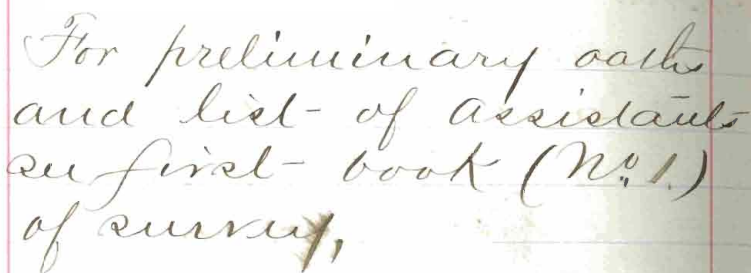 For preliminary oaths
and list of Assistants
see first book (No. 1.)
of survey,